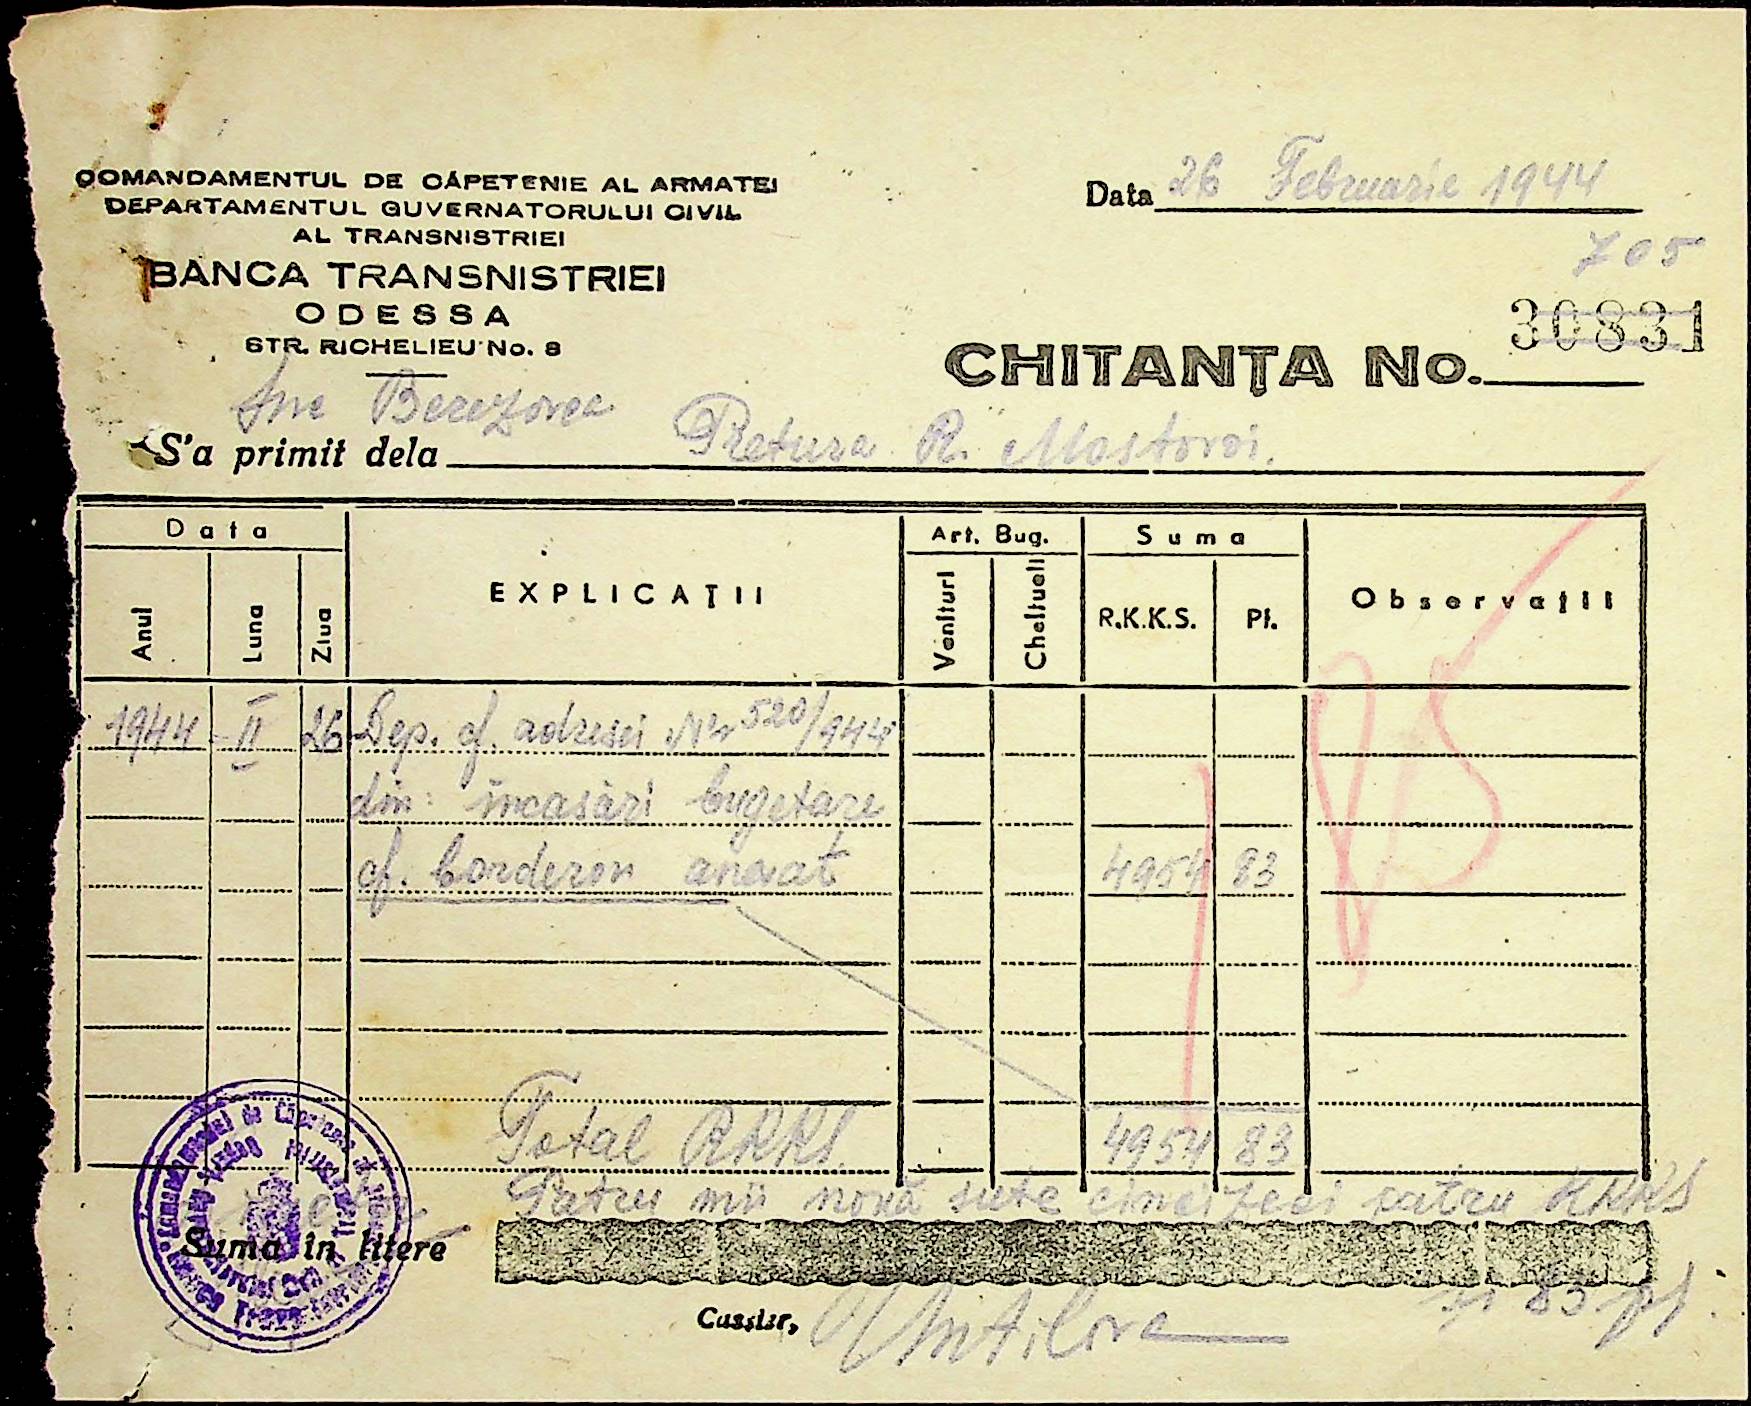 COMANDAMENTUL DE CĂPETENIE AL ARMATEI
DEPARTAMENTUL GUVERNATORULUI CIVIL
AL TRANSNISTRIEI
BANCA TRANSNISTRIEI
ODESSA
STR. RICHELIEU No. 8
Data 26 Februarie 1944
705
CHITANȚA No. 30831
Berezovca
S'a primit dela Pretura R. Mostovoi.
Data
EXPLICAȚII
Art. Bug.
Suma
Observații
Anul
Luna
Ziua
Venituri
Cheltueli
R.K.K.S.
Pf.
1944 II 26 Dep. cf. adresei Nr 520/944
din: încasări bugetare
cf. borderou anexat 4954 83
Total RKKS 4954 83
Patru mii nouă sute cincizeci patru RKKS
Suma în litere
și 83 pf.
Cassier,